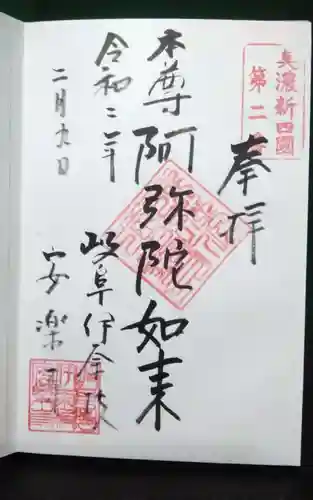 美濃新四國
第二
奉拝
本尊阿弥陀如来
岐阜伊奈波
安楽寺
令和二年
二月九日